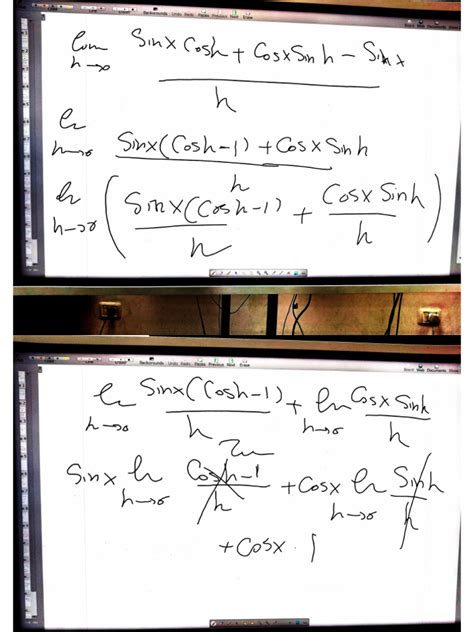 Backgrounds Undo Redo Pages Previous Next Erase
Board Web Documents Show
lim h→0 Sinx Cosh + Cosx Sinh − Sinx / h
lim h→0 Sinx(Cosh−1) + Cosx Sinh / h
lim h→0 ( Sinx(Cosh−1) / h + Cosx Sinh / h )
Backgrounds Undo Redo Pages Previous Next Erase
Board Web Documents Show
lim h→0 Sinx(Cosh−1) / h + lim h→0 Cosx Sinh / h
Sinx lim h→0 Cosh−1 / h + Cosx lim h→0 Sinh / h
+ Cosx · 1